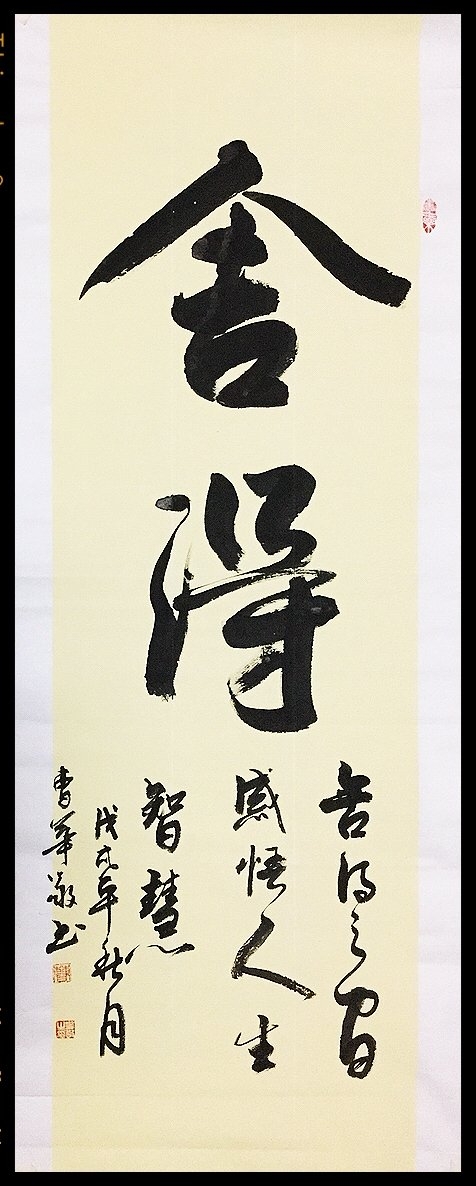 舍得
舍得之间
感悟人生
智慧
戊戌年秋月
曹华敬书